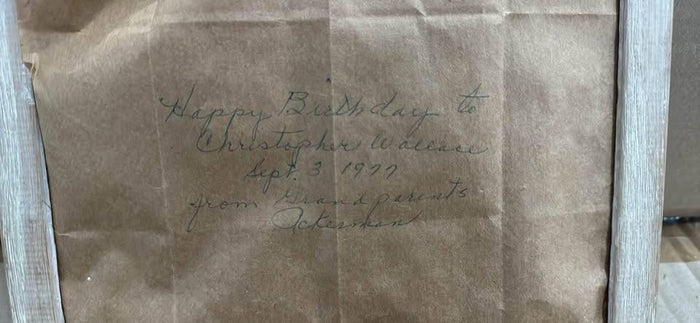 Happy Birthday to
Christopher Wallace
Sept. 3 1977
from Grandparents
Ackerman